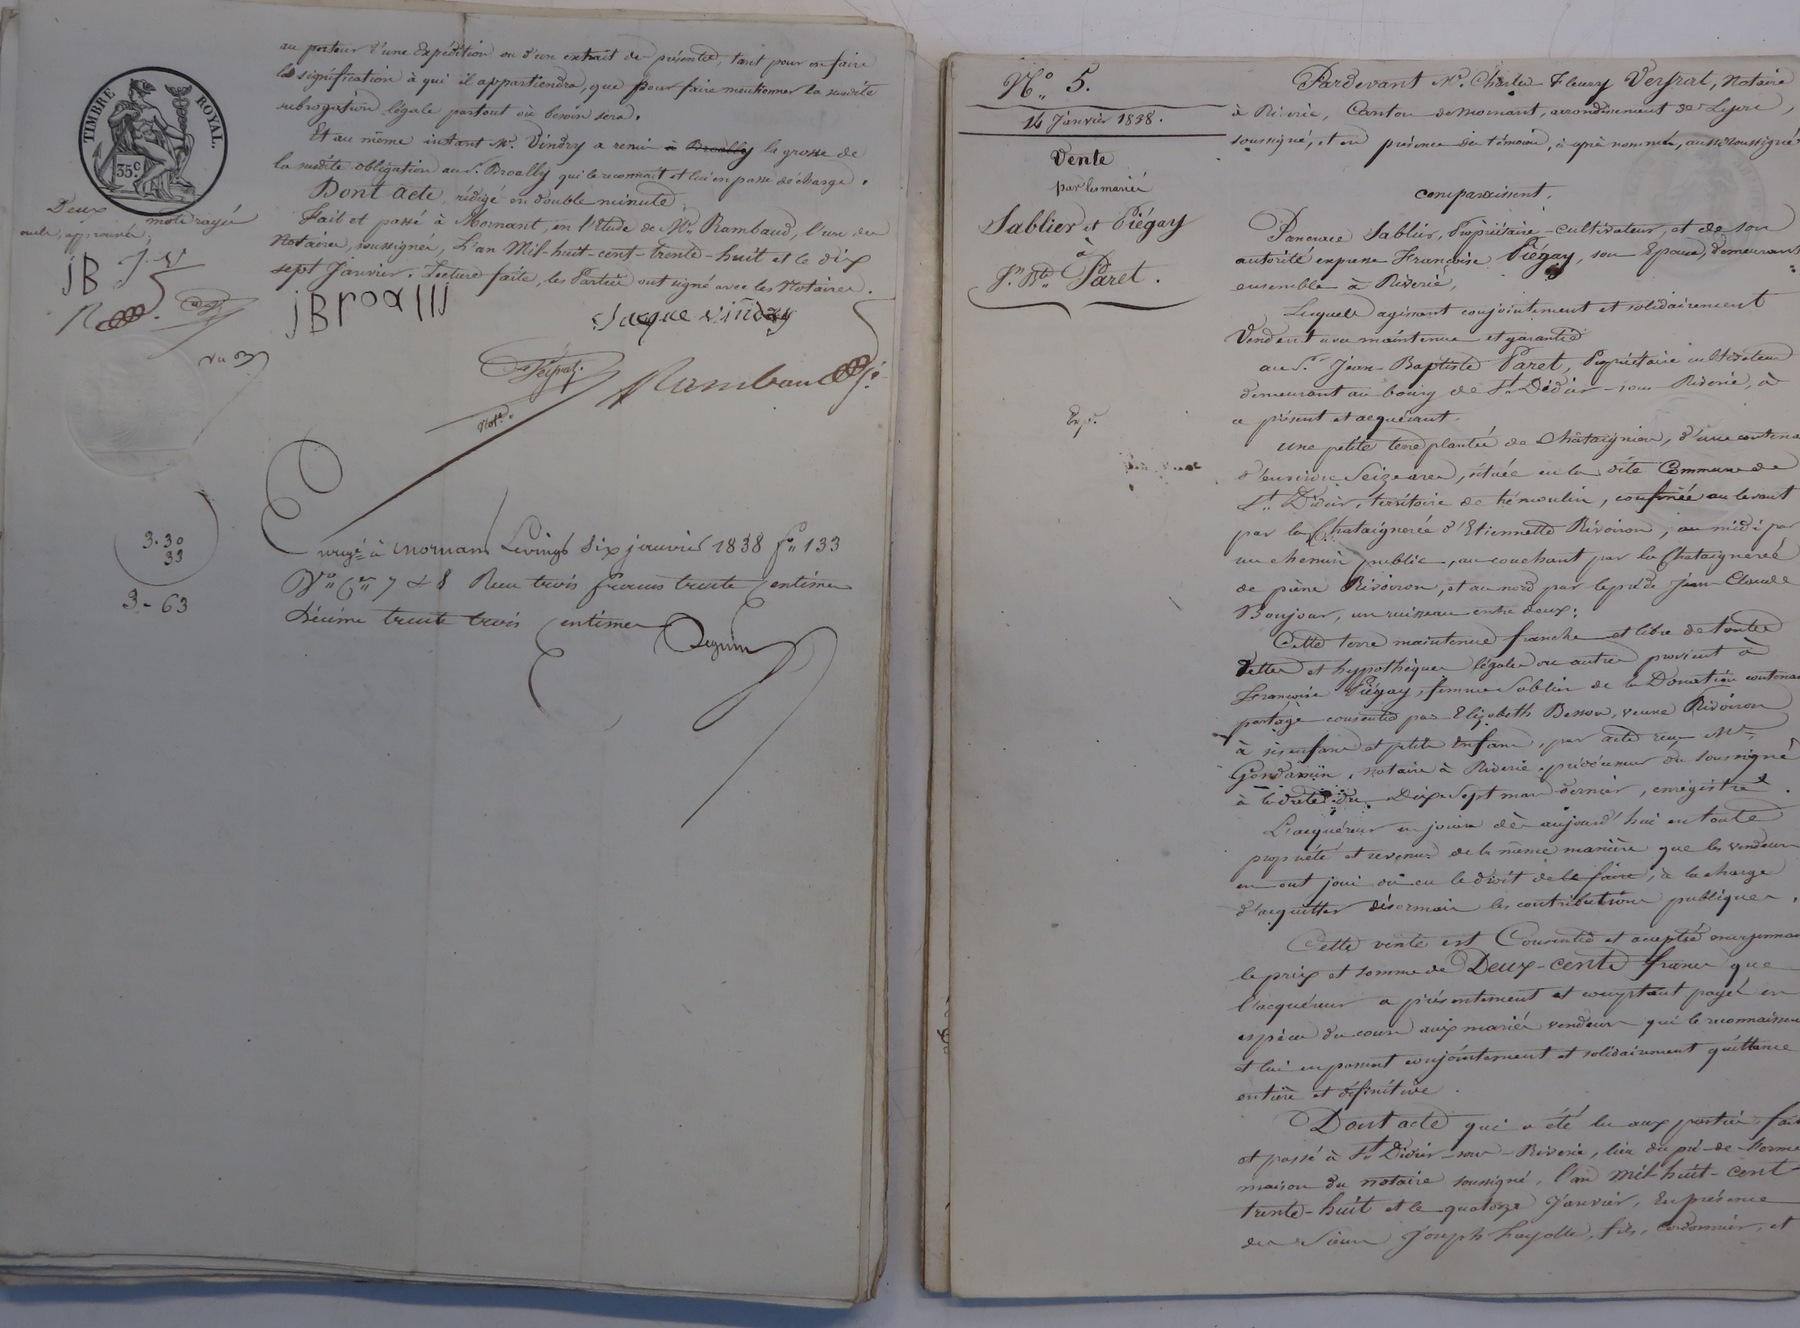 au porteur d'une Expédition ou d'un extrait des présentes, tant pour en faire
la signification à qui il appartiendra, que pour faire mentionner la susdite
subrogation légale partout où besoin sera.
Et au même instant Mr. Vindry a remis à Broally la grosse de
la susdite obligation au sr. Broally qui le reconnait et lui en passe décharge.
Dont acte, rédigé en double minute,
Fait et passé à Mornant, en l'Etude de Me. Rambaud, l'un des
Notaires, soussignés, L'an Mil-huit-cent-trente-huit et le dix
sept Janvier. Lecture faite, les Parties ont signé avec les Notaires.
TIMBRE ROYAL.
35 c.
Deux mots rayés
nuls, approuvés,
JB J. V
jBroally
Jacque vindry
Verpat
Rambaud
Notre.
3.30
33
3-63
Enregé à Mornant Le vingt six janvier 1838 fo 133
Vo Ces 7 & 8 Reçu trois francs trente Centimes
Décime trente trois Centimes
No. 5.
14 Janvier 1838.
Vente
par les mariés
Sablier et Piégay
à
Jn. Bte. Paret.
Exp.
Pardevant Me. Charles Fleury Verpat, Notaire
à Riverie, Canton de Mornant, arrondissement de Lyon,
soussigné, et en présence des témoins, ci après nommés, aussi soussignés
comparaissent.
Pancrace Sablier, Propriétaire-cultivateur, et de son
autorité expresse Françoise Piégay, son Epouse, demeurants
ensemble à Riverie,
Lesquels agissant conjointement et solidairement
Vendent avec maintenue et garantie
au Sr. Jean-Baptiste Paret, Propriétaire cultivateur
demeurant au bourg de St. Didier-sous Riverie, à
ce présent et acquérant.
une petite terre plantée de Châtaigniers, d'une contenance
d'environ Seize ares, située en la dite Commune de
St. Didier, territoire de , confinée au levant
par la Chataignerée d'Etiennette Rivoiron, au midi par
un chemin public, au couchant par la Chataignerée
de pierre Rivoiron, et au nord par le pré de Jean Claude
Bonjour, un ruisseau entre deux;
Cette terre maintenue franche et libre de toutes
dettes et hypothèques légales ou autres provient à
Françoise Piégay, femme Sablier de la Donation contenant
partage consentie par Elizabeth Besson, veuve Rivoiron
à ses enfans et petits Enfans, par acte reçu Me.
, notaire à Riverie, prédécesseur du soussigné
à la date du Dix-sept mars dernier, enregistré.
L'acquéreur en jouira dès aujourd'hui en toute
propriété et revenus de la même manière que les vendeurs
en ont joui ou eu le droit de le faire, à la charge
d'acquitter désormais les contributions publiques.
Cette vente est Consentie et acceptée moyennant
le prix et somme de Deux-cents francs que
l'acquéreur a présentement et comptant payés en
espèces du cours aux mariés vendeurs qui le reconnaissent
et lui en passent conjointement et solidairement quittance
entière et définitive.
Dont acte qui a été lu aux parties, fait
et passé à St. Didier-sous-Riverie, lieu du pré-de-l'orme
maison du notaire soussigné, l'an Mil-huit-cent
trente-huit et le quatorze Janvier, En présence
des Sieurs Joseph Fayolle, fils, cordonnier, et